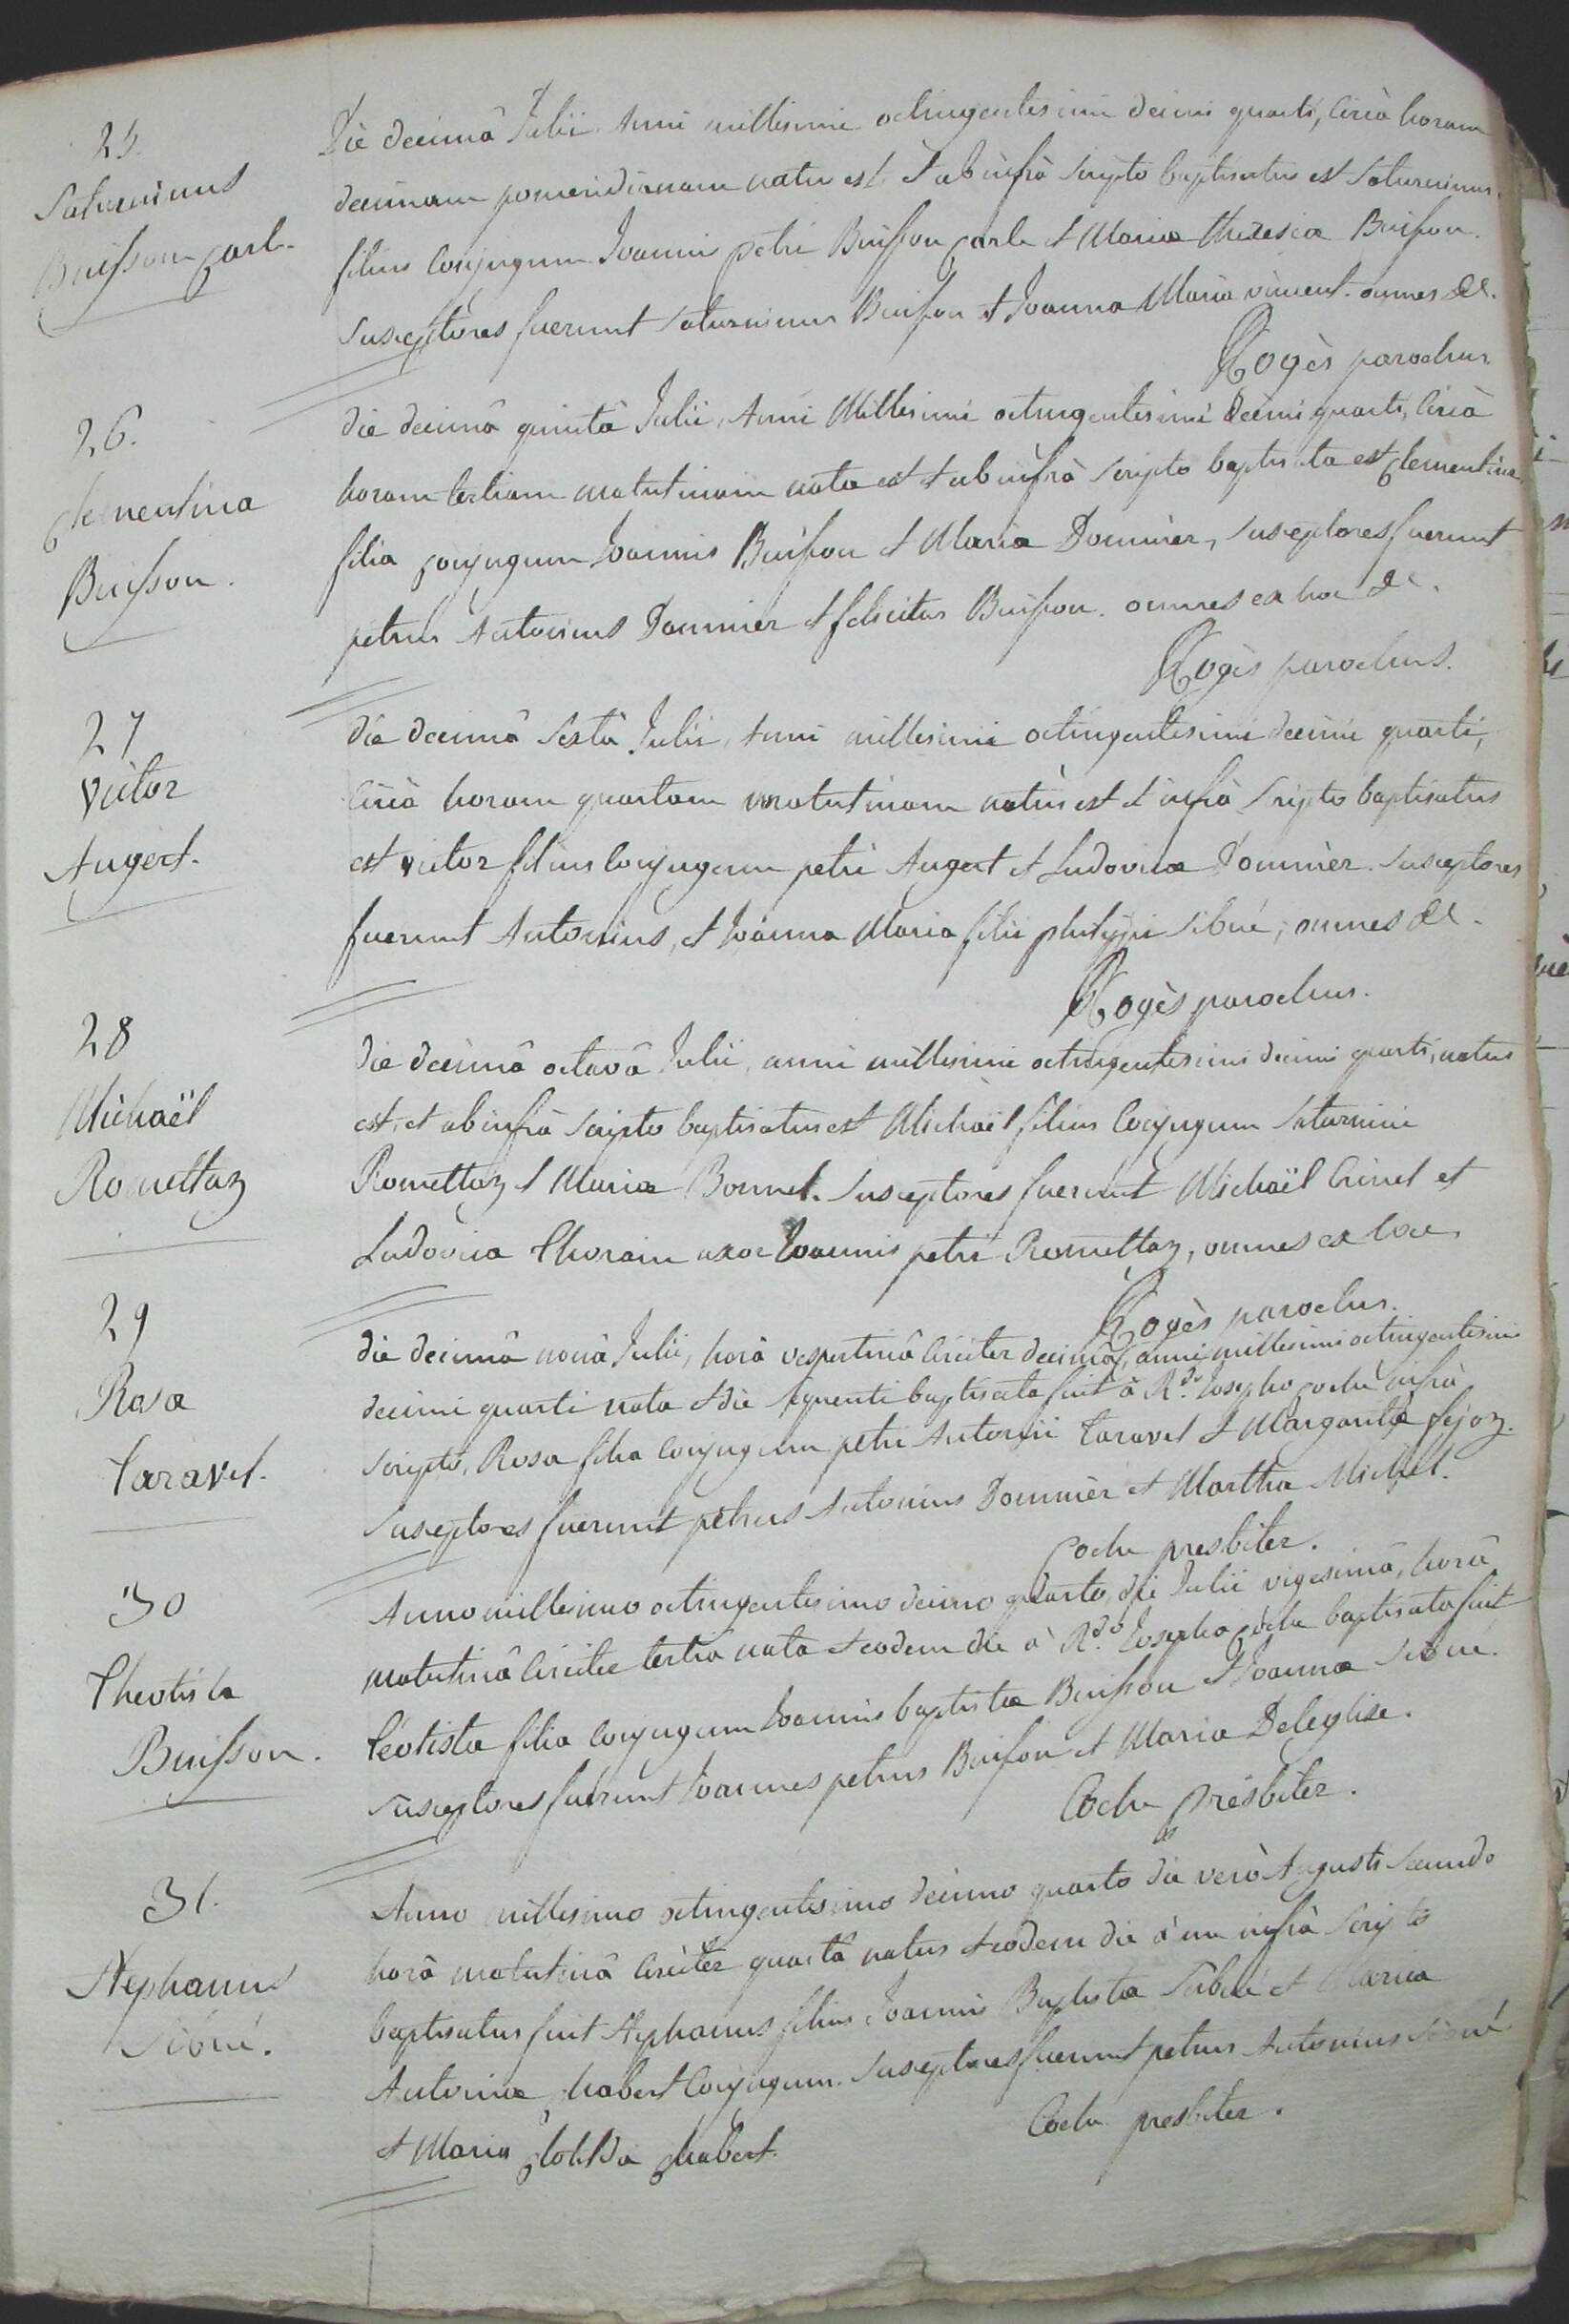 25.
Saturninus
Buisson carle.
Die decimâ Julii Anni millesimi octingentesimi decimi quarti, circà horam
decimam pomeridianam natus est & ab infrà scripto baptisatus est Saturninus
filius conjugum Joannis petri Buisson carle & Mariæ theresiæ Buisson.
susceptores fuerunt saturninus Buisson & Joanna Maria vincent. omnes &c.
Rogès parochus
26.
Clementina
Buisson.
die decimâ quintâ Julii, Anni Millesimi octingentesimi decimi quarti, circà
horam tertiam matutinam nata est & ab infrà scripto baptisata est Clementina
filia conjugum Joannis Buisson & Maria Dommier, susceptores fuerunt
petrus Antonius Dommier & felicitas Buisson. omnes ex hoc &c.
Rogès parochus.
27
Victor
Augert.
die decimâ sextâ Julii, Anni millesimi octingentesimi decimi quarti,
circà horam quartam matutinam natus est & infrà scripto baptisatus
est victor filius conjugum petri Augert & Ludovicæ Dommier. susceptores
fuerunt Antonius, & Joanna Maria filii philippi sibué; omnes &c.
Rogès parochus.
28
Michaël
Romettaz
die decimâ octavâ Julii, anni millesimi octingentesimi decimi quarti, natus
est, et ab infrà scripto baptisatus est Michaël filius conjugum Saturnini
Romettaz & Mariæ Bonnel. susceptores fuerunt Michaël Crinel et
Ludovica Chorain uxor Joannis petri Romettaz, omnes ex loco
Rogès parochus.
29
Rosa
Taravel.
die decimâ nonâ Julii, horâ vespertinâ circiter decimâ, anni millesimi octingentesimi
decimi quarti nata & die sequenti baptisata fuit à Rdo. Josepho coche infrà
scripto, Rosa filia conjugum petri Antonii Taravel & Margarita fejoz.
susceptores fuerunt petrus Antonius Dommier et Martha Michel.
Coche presbiter.
30
Theotista
Buisson.
Anno millesimo octingentesimo decimo quarto, die Julii vigesimâ, horâ
matutinâ circiter tertia nata & eodem die à Rdo. Josepho coche baptisata fuit
téotista filia conjugum Joannis baptistæ Buisson & Joanna Sibué.
susceptores fuerunt Joannes petrus Buisson et Maria Deleglise.
Coche presbiter.
31.
Stephanus
Sibué.
Anno millesimo octingentesimo decimo quarto die verò Augusti secundo
horâ matutinâ circiter quartâ natus & eodem die à me infrà scripto
baptisatus fuit Stephanus filius Joannis Baptistæ Sibué & Maria
Antonia chabert conjugum. susceptores fuerunt petrus Antonius sibué
& Maria Clotilda Chabert.
Coche presbiter.